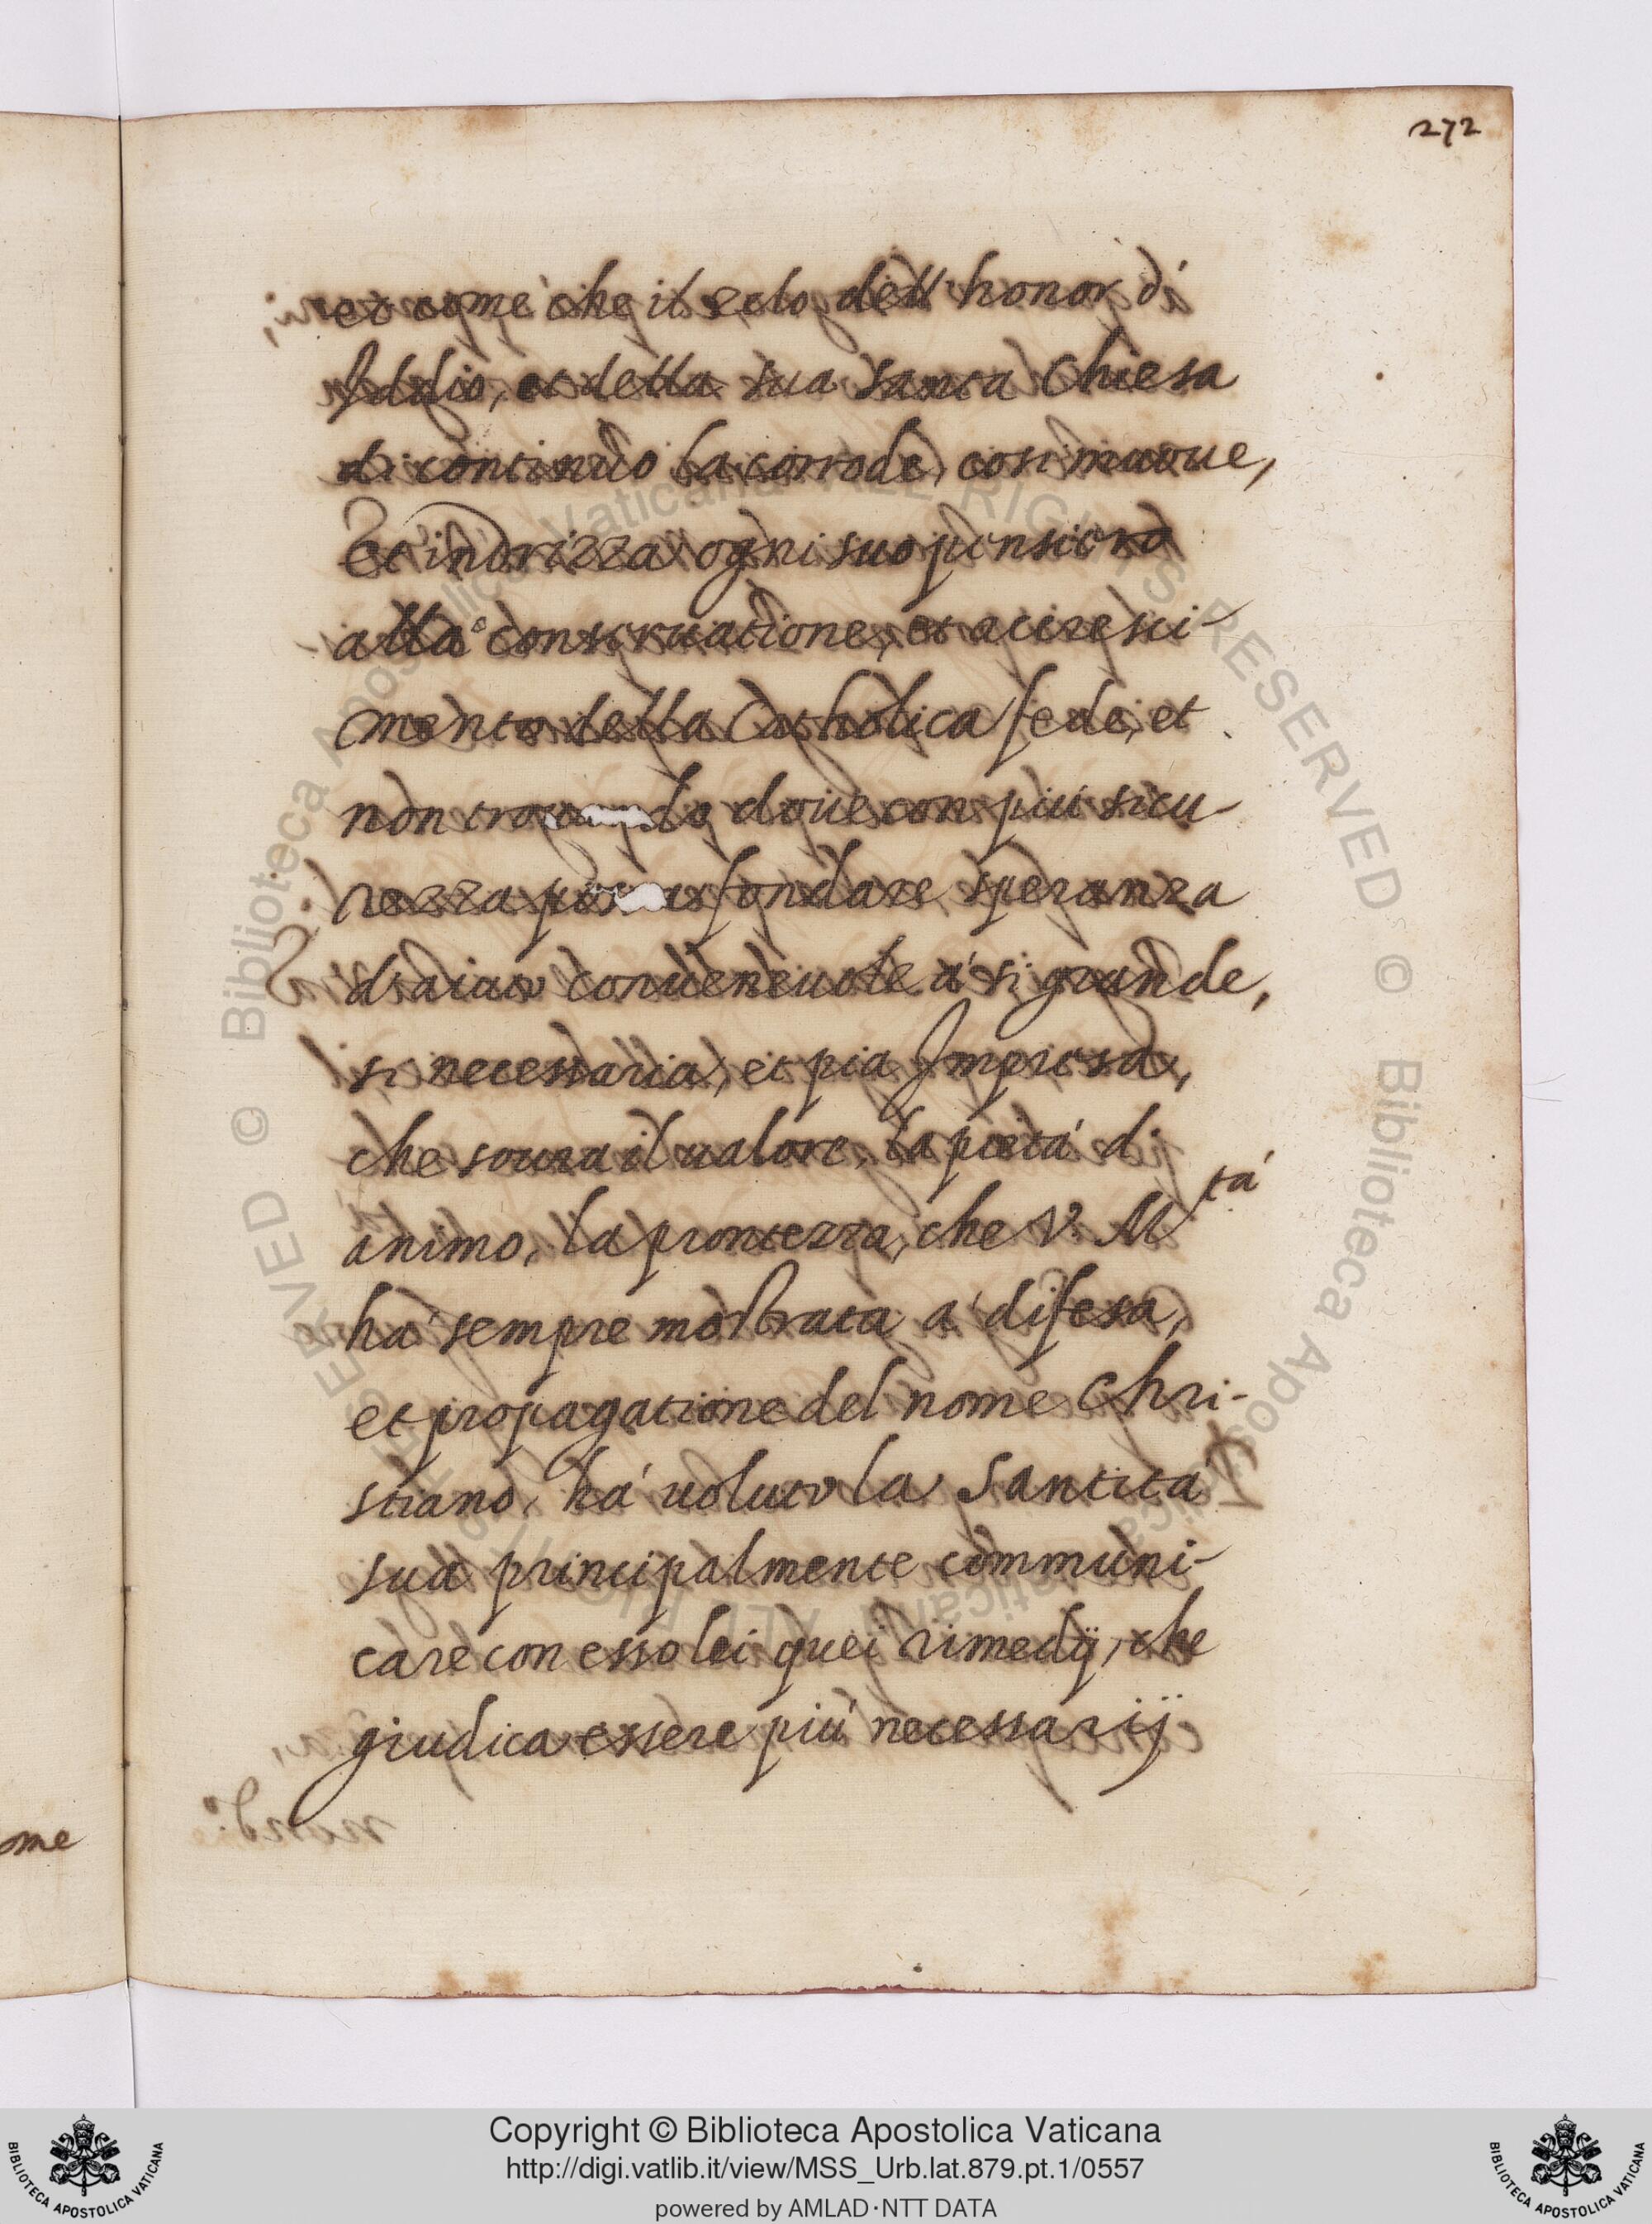 272
et come che il zelo dell'honor di
Iddio, et della sua santa Chiesa
di continuo la corrode, cosi muoue,
Et indrizza ogni suo pensiero
alla conseruatione, et accresci-
mento della Catholica fede, et
non trouando doue con più sicu-
rezza possa fondare speranza
d'aiuto conueneuole á si grande,
si necessaria, et pia Impresa,
che soura il ualore, la pietá di
animo, la prontezza, che V. M.tá
há sempre mostrata a difesa,
et propagatione del nome Chri-
stiano, há uoluto la Santitá
sua principalmente communi-
care con esso lei quei rimedij, che
giudica essere piú necessarij
ome
Copyright © Biblioteca Apostolica Vaticana
http://digi.vatlib.it/view/MSS_Urb.lat.879.pt.1/0557
powered by AMLAD·NTT DATA
BIBLIOTECA APOSTOLICA VATICANA
BIBLIOTECA APOSTOLICA VATICANA